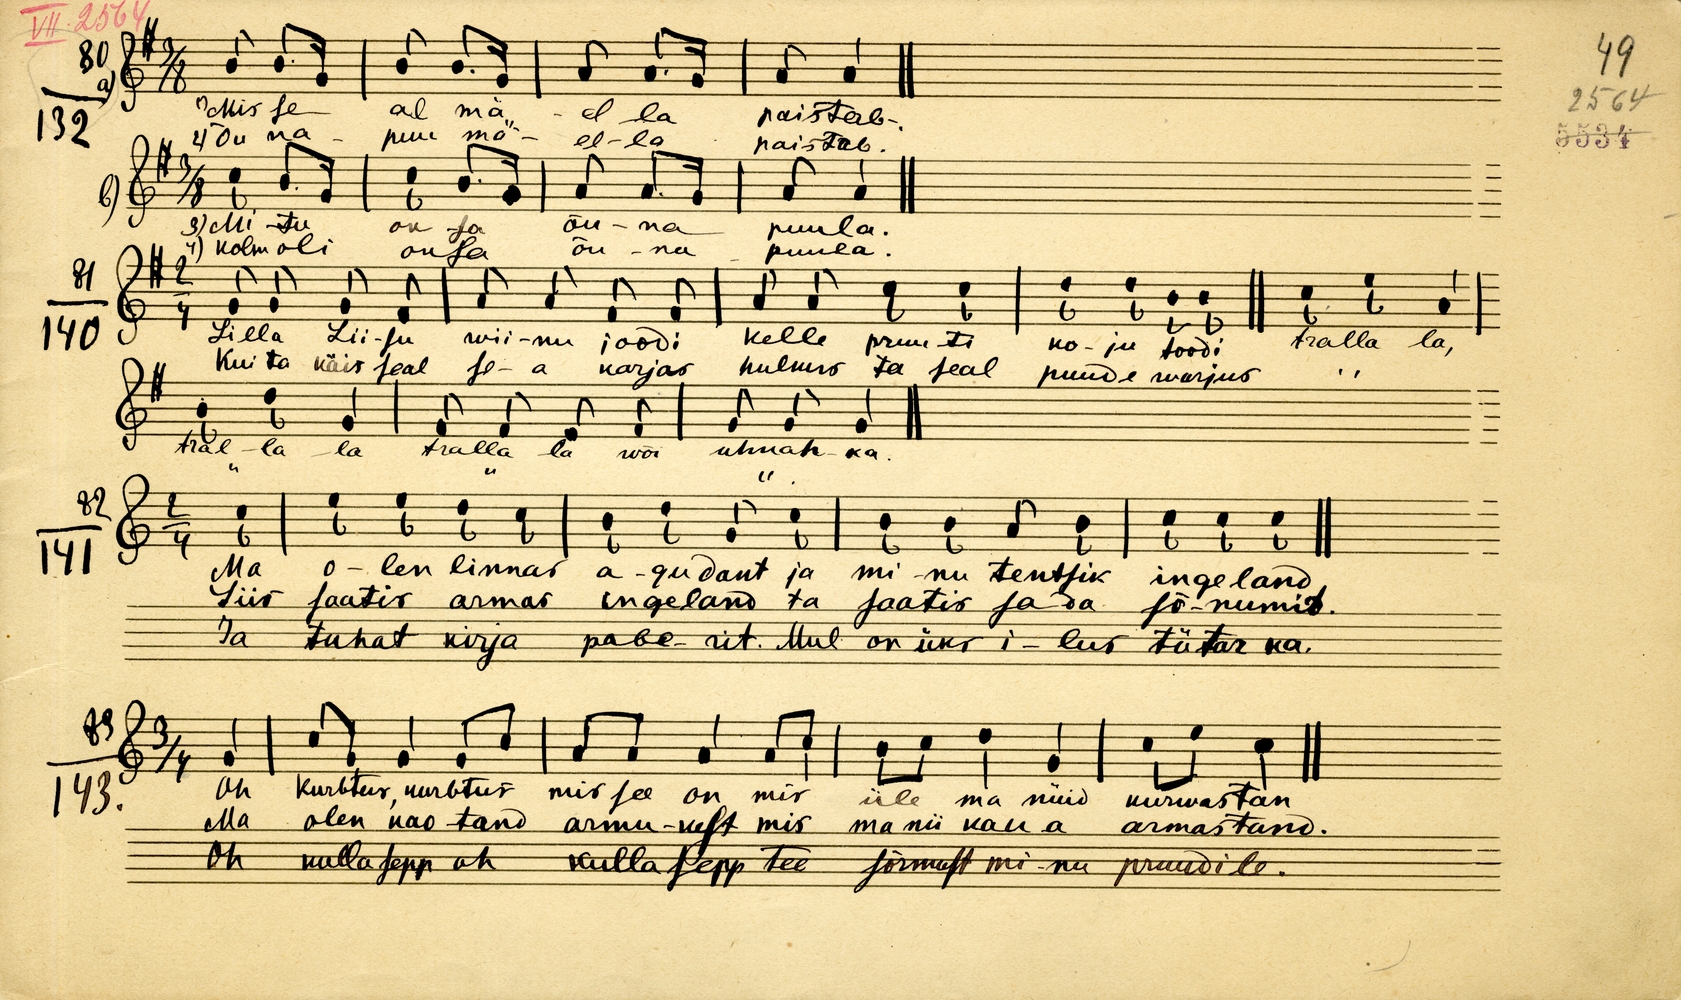 VII 2564
49
2564
5534
80
a)
132
3/8
1) Mis se al mä - el la paistab.
2) Õu na - puu mä - el-la paistab.
b)
3/8
3) Mi-tu on sa õu-na puula.
4) Kolm oli on sa õu-na puula.
81
140
2/4
Lilla Lii-su wii-nu joodi kelle pruu-ti ko-ju toodi tralla la,
Kui ta käis seal se-a karjas hulkus ta seal puude warjus "
tral-la la tralla la woi uhnah-ka.
" " "
82
141
2/4
Ma o-len linnas a-gudant ja mi-nu tentsik ingeland,
Siis saatis armas ingeland ta saatis sa da sõ-numit.
Ja tuhat kirja pabe-rit. Mul on üks i-lus tütar ka.
83
143.
3/4
Oh kurbtus, kurbtus mis see on mis üle ma nüid kurwastan
Ma olen kao-tand armu-kest mis ma nii kau a armastand.
Oh kulla sepp oh kulla sepp tee sõrmust mi-nu pruudile.